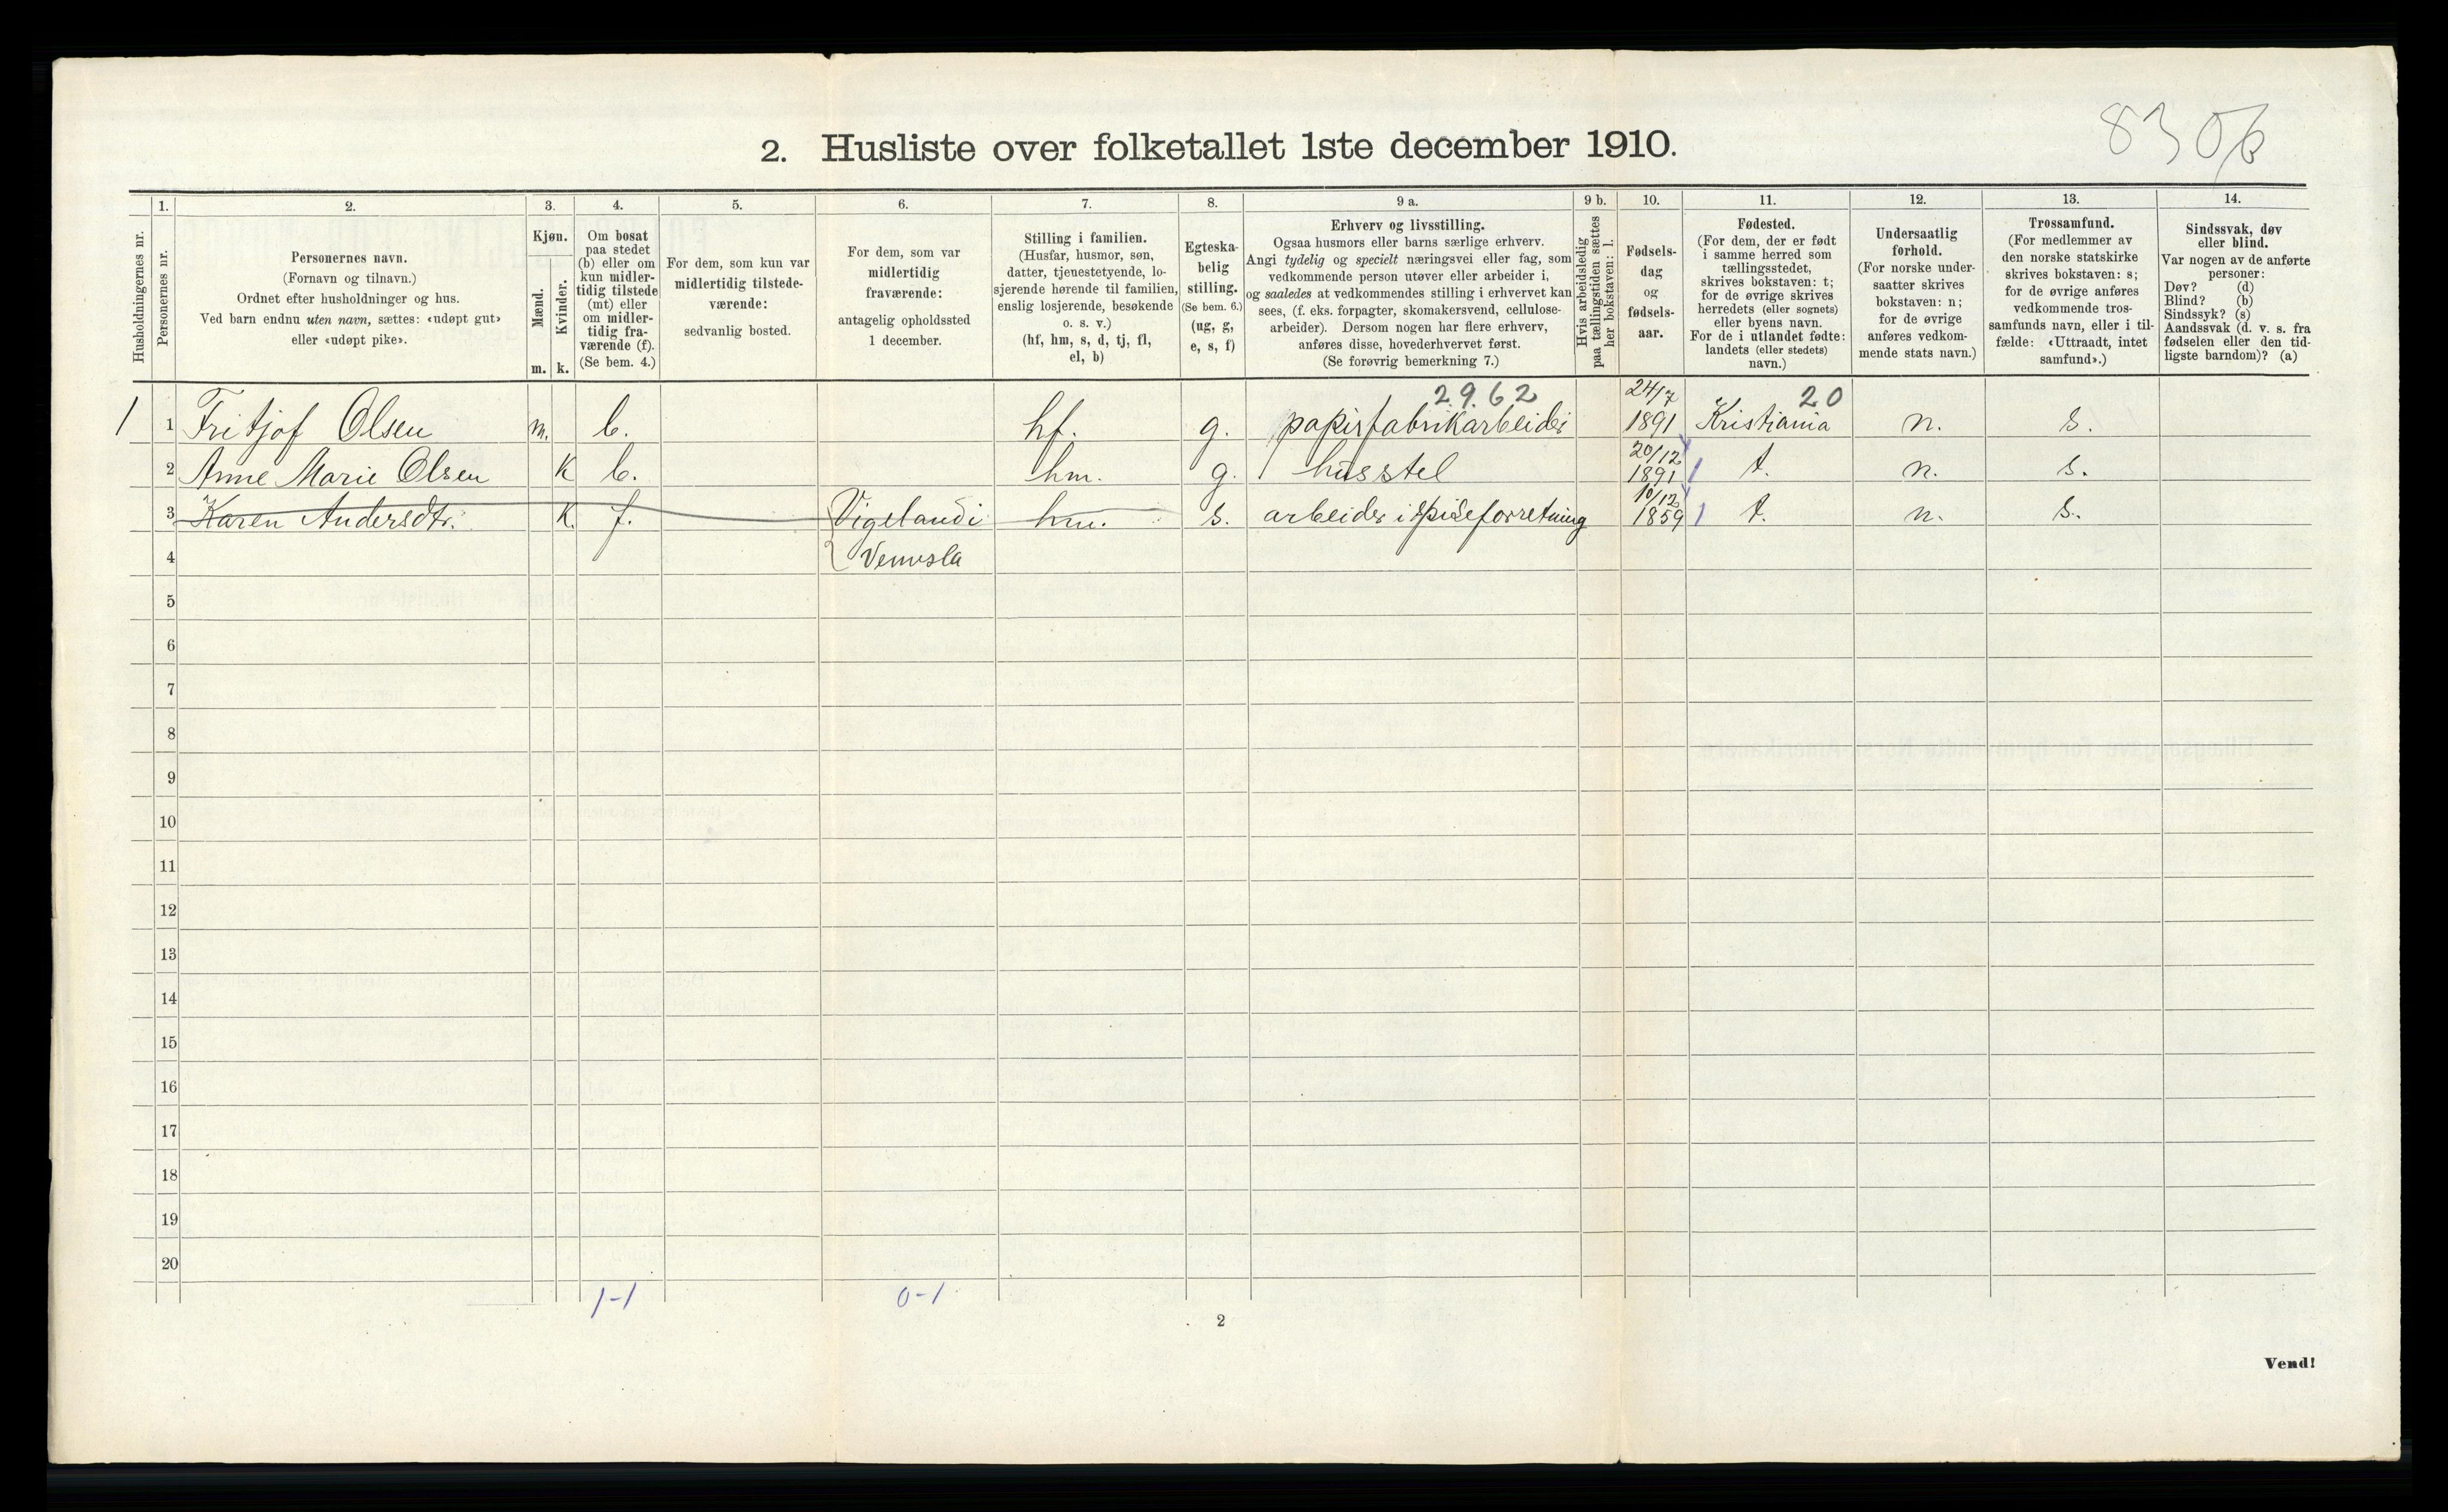 8306
2. Husliste over folketallet 1ste december 1910.
Husholdningernes nr.
1.
Personernes nr.
2.
Personernes navn.
(Fornavn og tilnavn.)
Ordnet efter husholdninger og hus.
Ved barn endnu uten navn, sættes: «udøpt gut»
eller «udøpt pike».
3.
Kjøn.
Mænd.
Kvinder.
m. k.
4.
Om bosat
paa stedet
(b) eller om
kun midler-
tidig tilstede
(mt) eller
om midler-
tidig fra-
værende (f).
(Se bem. 4.)
5.
For dem, som kun var
midlertidig tilstede-
værende:
sedvanlig bosted.
6.
For dem, som var
midlertidig
fraværende:
antagelig opholdssted
1 december.
7.
Stilling i familien.
(Husfar, husmor, søn,
datter, tjenestetyende, lo-
sjerende hørende til familien,
enslig losjerende, besøkende
o. s. v.)
(hf, hm, s, d, tj, fl,
el, b)
8.
Egteska-
belig
stilling.
(Se bem. 6.)
(ug, g,
e, s, f)
9 a.
Erhverv og livsstilling.
Ogsaa husmors eller barns særlige erhverv.
Angi tydelig og specielt næringsvei eller fag, som
vedkommende person utøver eller arbeider i,
og saaledes at vedkommendes stilling i erhvervet kan
sees, (f. eks. forpagter, skomakersvend, cellulose-
arbeider). Dersom nogen har flere erhverv,
anføres disse, hovederhvervet først.
(Se forøvrig bemerkning 7.)
9 b.
Hvis arbeidsledig
paa tællingstiden sættes
her bokstaven: l.
10.
Fødsels-
dag
og
fødsels-
aar.
11.
Fødested.
(For dem, der er født
i samme herred som
tællingsstedet,
skrives bokstaven: t;
for de øvrige skrives
herredets (eller sognets)
eller byens navn.
For de i utlandet fødte:
landets (eller stedets)
navn.)
12.
Undersaatlig
forhold.
(For norske under-
saatter skrives
bokstaven: n;
for de øvrige
anføres vedkom-
mende stats navn.)
13.
Trossamfund.
(For medlemmer av
den norske statskirke
skrives bokstaven: s;
for de øvrige anføres
vedkommende tros-
samfunds navn, eller i til-
fælde: «Uttraadt, intet
samfund».)
14.
Sindssvak, døv
eller blind.
Var nogen av de anførte
personer:
Døv? (d)
Blind? (b)
Sindssyk? (s)
Aandssvak (d. v. s. fra
fødselen eller den tid-
ligste barndom)? (a)
2962 24/7 20
1 1 Fritjof Olsen m. b. hf. g. papirfabrikarbeider 1891 Kristiania n. s.
20/12
2 Anne Marie Olsen K b. hm. g. husstel 1891 t. n. s.
10/12
3 Karen Andersdtr. K. f. Vigeland i hm. s. arbeider i spiseforretning 1859 t. n. s.
4 Vennsla
5
6
7
8
9
10
11
12
13
14
15
16
17
18
19
20
1-1 0-1
2
Vend!